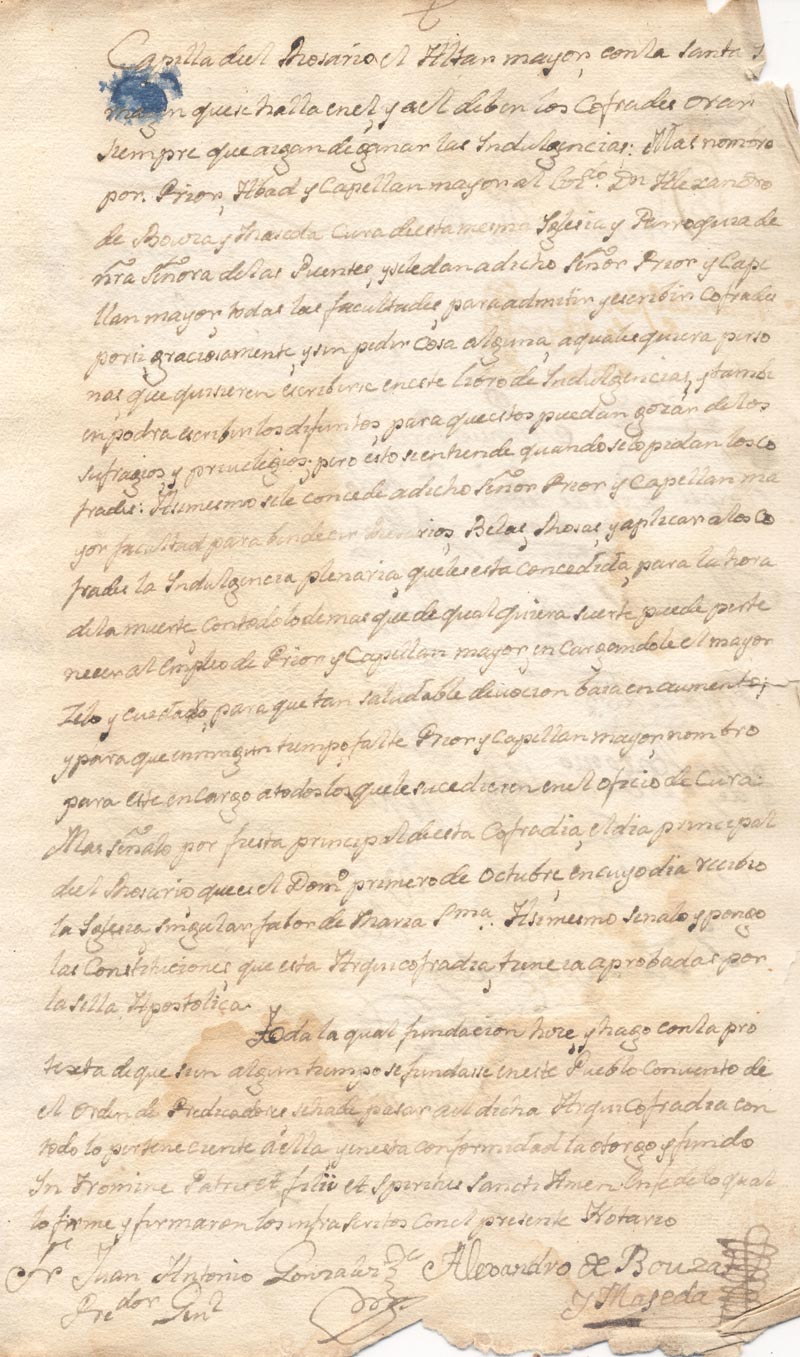 Capilla del Rosario el Altar mayor, con la santa Y
magen que se halla en el y a el deben los Cofrades orar
siempre que aigan de ganar las Indulgencias: Mas nombro
por Prior, Abad y Capellan mayor al Dn Alexandro
de Bouza y Maseda Cura de esta mesma Iglesia y Parroquia de
ñra Señora de las Puentes, y se le dan a dicho Señor Prior y Cape
llan mayor, todas las facultades para admitir y escribir Cofrades
por si, graciosamente, y sin pedir Cosa alguna, a quales quiera perso
nas que quisieren escribirse en este libro de Indulgencias, y tambi
en podra escribir los difuntos, para que estos puedan gozar de los
sufragios, y privilegios; pero esto se entiende quando selo pidan los co
frades: Asimesmo se le concede a dicho Señor Prior y Capellan ma
yor facultad para bendecir Rosarios, Belas, Rosas, y aplicar a los co
frades la Indulgencia plenaria que les esta concedida, para la hora
de la muerte, con todo lo demas que de qualquiera suerte puede perte
necer al empleo de Prior y Capellan mayor, en Cargandole el mayor
Zelo y cuidado, para que tan saludable devocion baia en aumento;
y para que en ningun tiempo, falte Prior y Capellan mayor, nombro
para este encargo a todos los que le sucedieren en el oficio de Cura:
Mas Señalo por fiesta principal de esta Cofradia, el dia principal
del Rosario que es el Domo primero de Octubre, en cuyo dia recibio
la Iglesia singular fabor de Maria Sma. Asimesmo senalo y pongo
las Constituciones, que esta Arquicofradia, tiene ia aprobadas por
la silla Apostolica.
Toda la qual fundacion hice, y hago con la pro
texta de que si en algun tiempo se fundasse en este Pueblo Convento de
el Orden de Predicadores se ha de pasar a el dicha Arquicofradia con
todo lo perteneciente a ella y en esta conformidad la otorgo y fundo
In Nomine Patris et filii et Spiritus Sancti Amen. En fe de lo qual
lo firme y firmaron los infraescritos con el presente Notario
Fr Juan Antonio Gonzalez Alexandro de Bouza
Predor Genl y Maseda